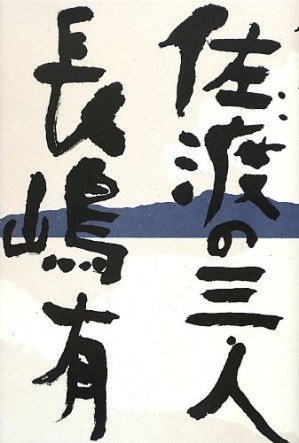 佐渡の三人
長嶋有